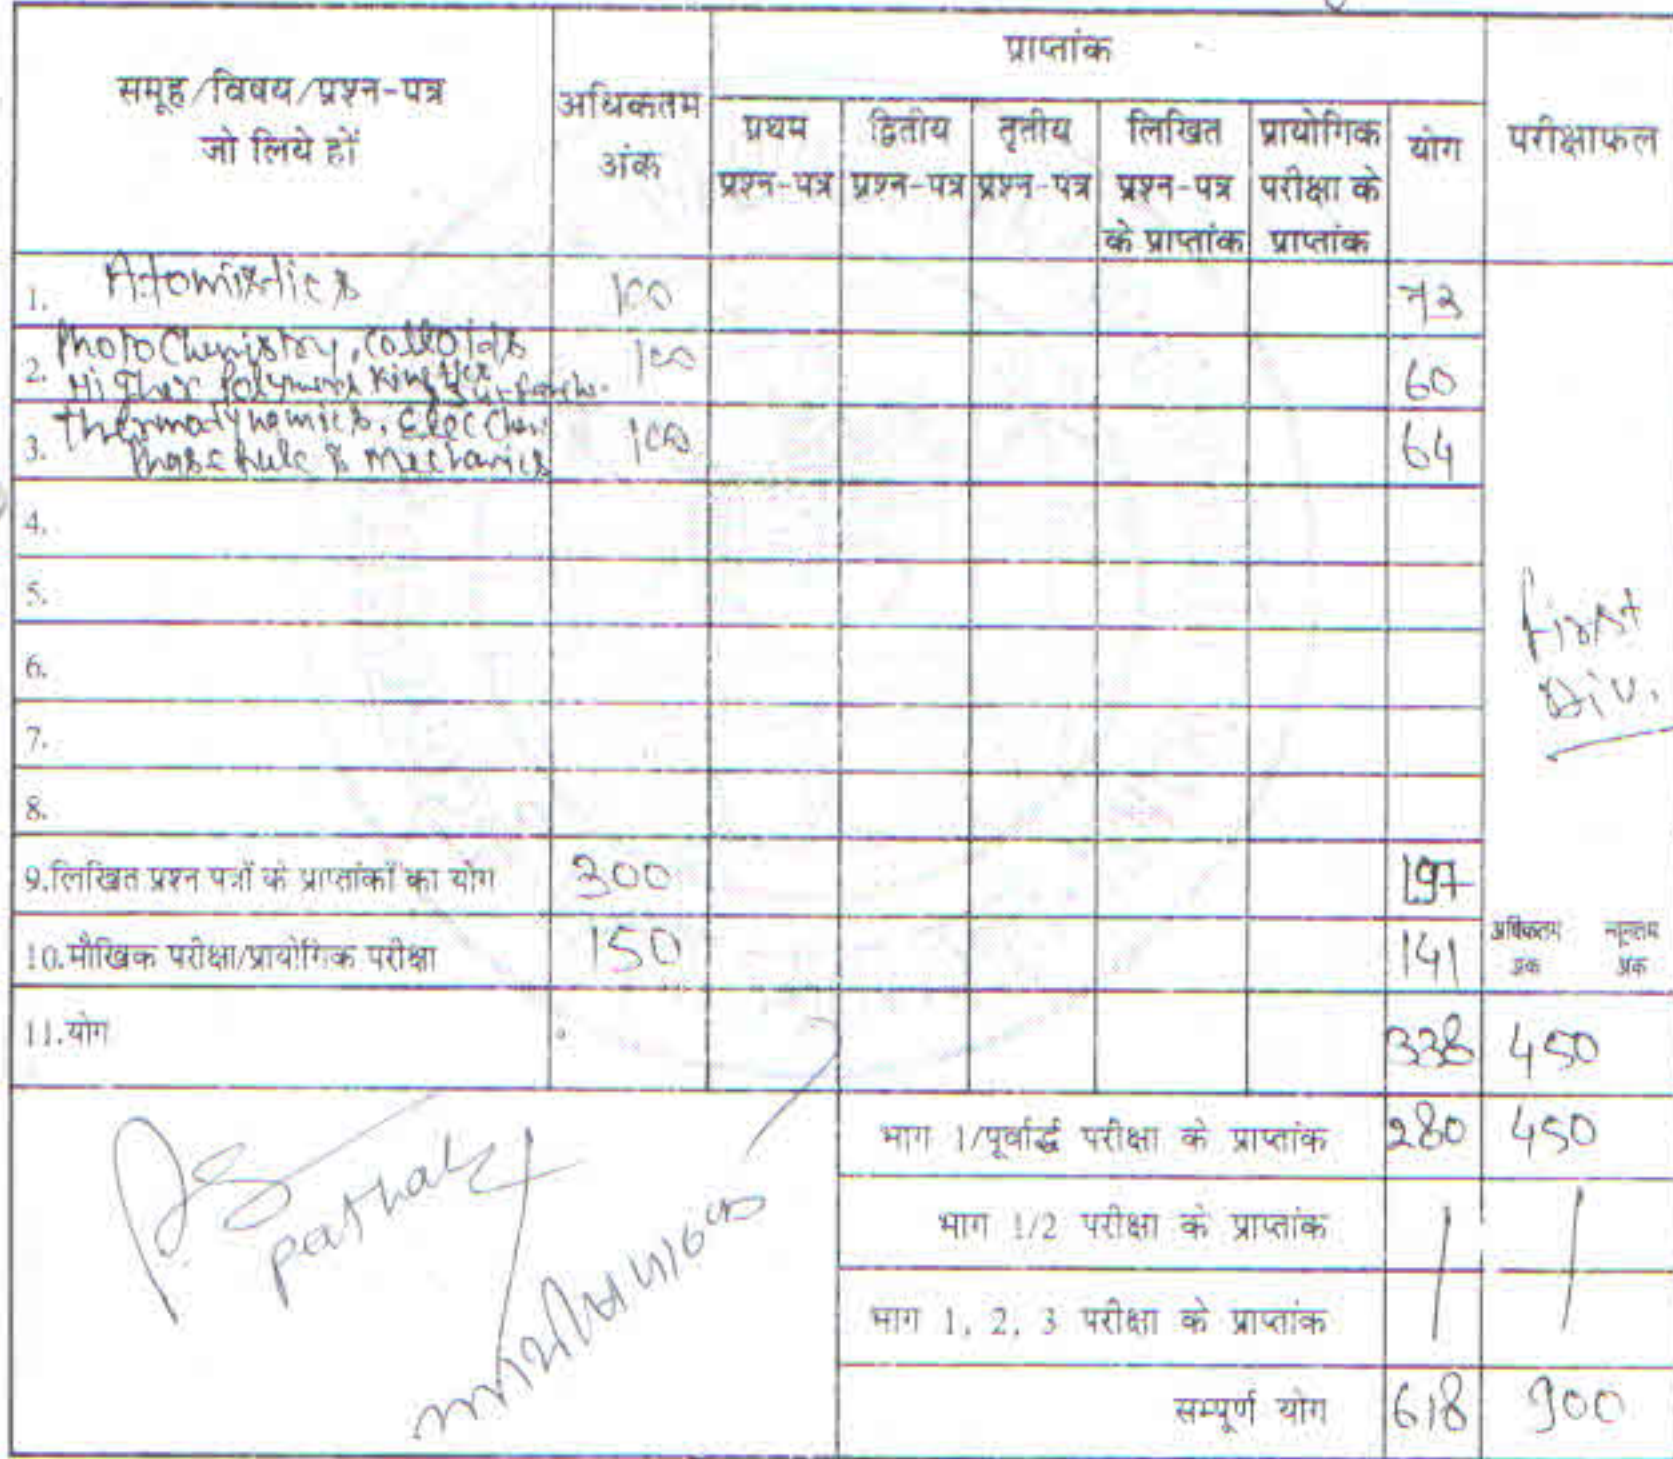 समूह/विषय/प्रश्न-पत्र
जो लिये हों
अधिकतम
अंक
प्राप्तांक
प्रथम
प्रश्न-पत्र
द्वितीय
प्रश्न-पत्र
तृतीय
प्रश्न-पत्र
लिखित
प्रश्न-पत्र
के प्राप्तांक
प्रायोगिक
परीक्षा के
प्राप्तांक
योग
परीक्षाफल
1. Atomistics 100 73
2. Photo Chemistry, Colloids
Higher Polymers Kinetics 100 60
3. Thermodynamics, Elec Chem
Phase Rule & Mechanics 100 64
4.
5.
6.
7.
8.
First
Div.
9.लिखित प्रश्न पत्रों के प्राप्तांकों का योग 300 197
10.मौखिक परीक्षा/प्रायोगिक परीक्षा 150 141
अधिकतम न्यूनतम
अंक अंक
11.योग 338 450
भाग 1/पूर्वार्द्ध परीक्षा के प्राप्तांक 280 450
भाग 1/2 परीक्षा के प्राप्तांक
भाग 1, 2, 3 परीक्षा के प्राप्तांक
सम्पूर्ण योग 618 900
Pathak